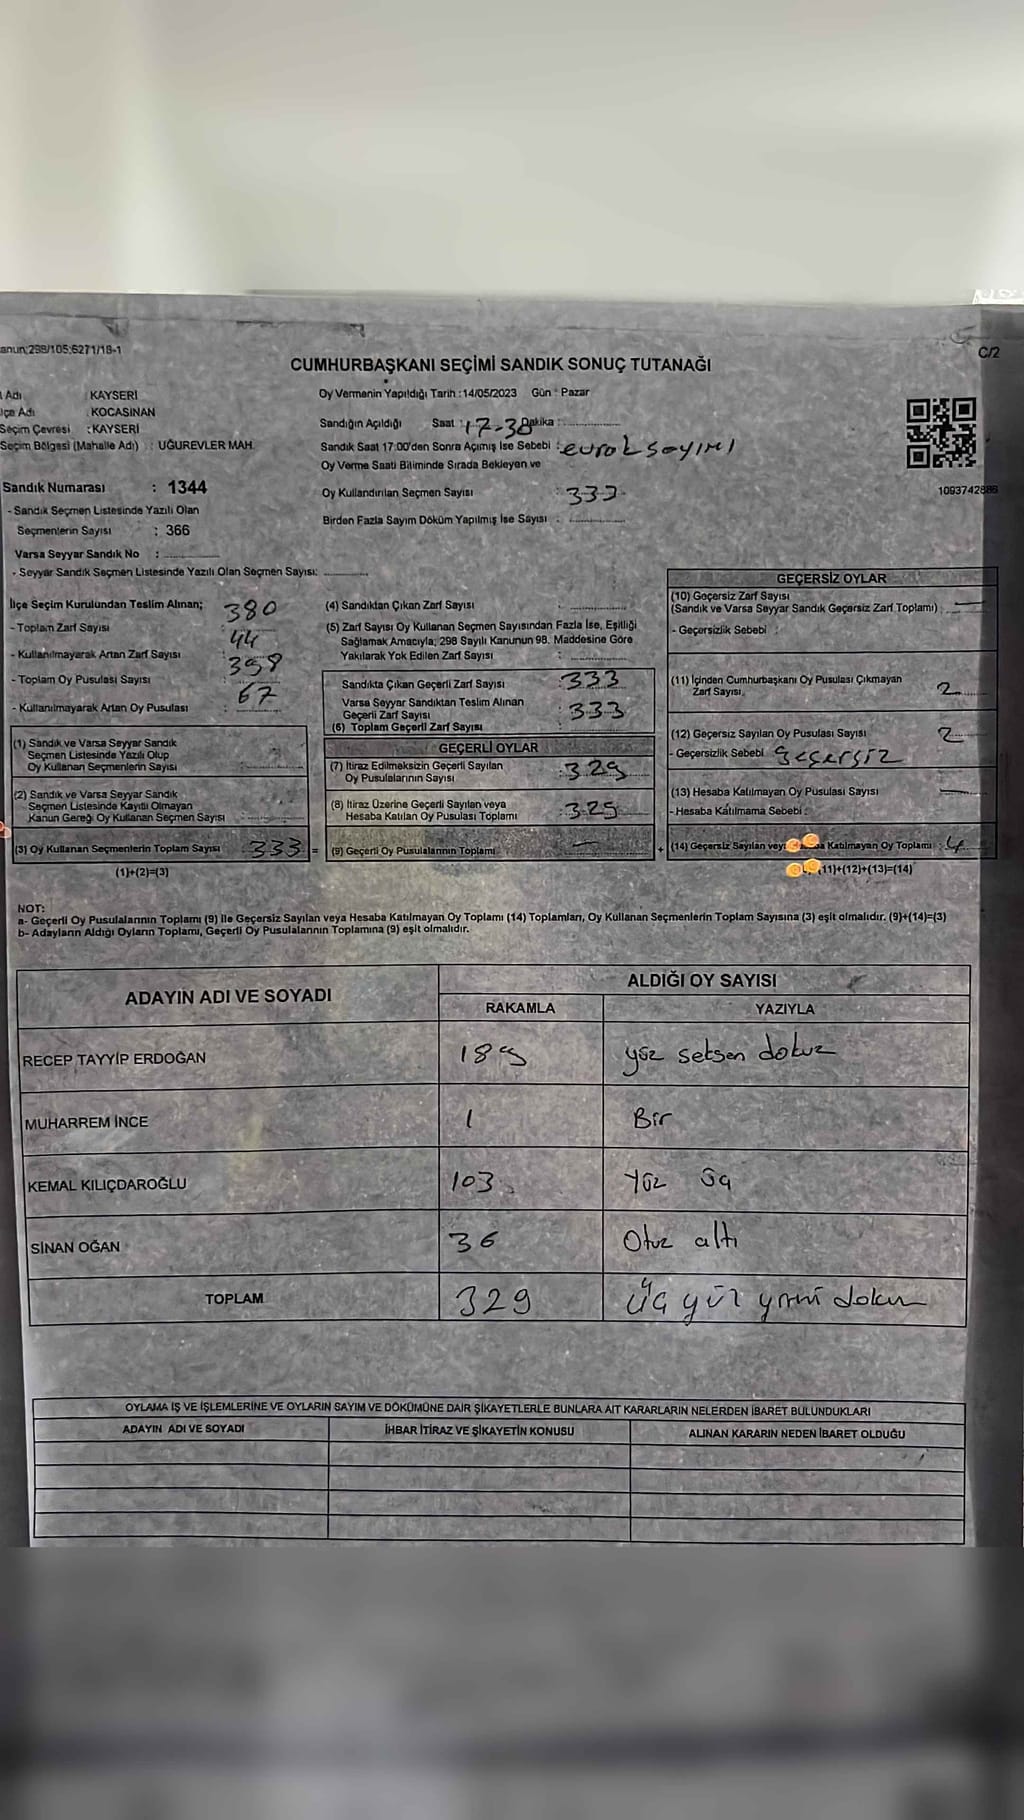 anun;298/105;6271/18-1
C/2
CUMHURBAŞKANI SEÇİMİ SANDIK SONUÇ TUTANAĞI
Adı : KAYSERİ
lçe Adı : KOCASİNAN
Seçim Çevresi : KAYSERİ
Seçim Bölgesi (Mahalle Adı) : UĞUREVLER MAH.
Oy Vermenin Yapıldığı Tarih :14/05/2023 Gün : Pazar
Sandığın Açıldığı Saat : 17-30 Dakika :
Sandık Saat 17:00'den Sonra Açımış İse Sebebi : evrak sayımı
Oy Verme Saati Bitiminde Sırada Bekleyen ve
Oy Kullandırılan Seçmen Sayısı : 333
Birden Fazla Sayım Döküm Yapılmış İse Sayısı :
Sandık Numarası : 1344
- Sandık Seçmen Listesinde Yazılı Olan
Seçmenlerin Sayısı : 366
Varsa Seyyar Sandık No :
- Seyyar Sandık Seçmen Listesinde Yazılı Olan Seçmen Sayısı:
İlçe Seçim Kurulundan Teslim Alınan;
- Toplam Zarf Sayısı : 380
- Kullanılmayarak Artan Zarf Sayısı : 44
- Toplam Oy Pusulası Sayısı : 398
- Kullanılmayarak Artan Oy Pusulası : 67
(1) Sandık ve Varsa Seyyar Sandık
Seçmen Listesinde Yazılı Olup
Oy Kullanan Seçmenlerin Sayısı :
(2) Sandık ve Varsa Seyyar Sandık
Seçmen Listesinde Kayıtlı Olmayan
Kanun Gereği Oy Kullanan Seçmen Sayısı :
(3) Oy Kullanan Seçmenlerin Toplam Sayısı : 333 =
(1)+(2)=(3)
(4) Sandıktan Çıkan Zarf Sayısı :
(5) Zarf Sayısı Oy Kullanan Seçmen Sayısından Fazla İse, Eşitliği
Sağlamak Amacıyla; 298 Sayılı Kanunun 98. Maddesine Göre
Yakılarak Yok Edilen Zarf Sayısı :
Sandıkta Çıkan Geçerli Zarf Sayısı : 333
Varsa Seyyar Sandıktan Teslim Alınan
Geçerli Zarf Sayısı : 333
(6) Toplam Geçerli Zarf Sayısı
GEÇERLİ OYLAR
(7) İtiraz Edilmeksizin Geçerli Sayılan
Oy Pusulalarının Sayısı : 329
(8) İtiraz Üzerine Geçerli Sayılan veya
Hesaba Katılan Oy Pusulası Toplamı : 329
(9) Geçerli Oy Pusulalarının Toplamı : — +
1093742888
GEÇERSİZ OYLAR
(10) Geçersiz Zarf Sayısı
(Sandık ve Varsa Seyyar Sandık Geçersiz Zarf Toplamı) : —
- Geçersizlik Sebebi :
(11) İçinden Cumhurbaşkanı Oy Pusulası Çıkmayan
Zarf Sayısı, 2
(12) Geçersiz Sayılan Oy Pusulası Sayısı 2
- Geçersizlik Sebebi : geçersiz
(13) Hesaba Katılmayan Oy Pusulası Sayısı —
- Hesaba Katılmama Sebebi :
(14) Geçersiz Sayılan vey Katılmayan Oy Toplamı : 4
(11)+(12)+(13)=(14)
NOT:
a- Geçerli Oy Pusulalarının Toplamı (9) İle Geçersiz Sayılan veya Hesaba Katılmayan Oy Toplamı (14) Toplamları, Oy Kullanan Seçmenlerin Toplam Sayısına (3) eşit olmalıdır. (9)+(14)=(3)
b- Adayların Aldığı Oyların Toplamı, Geçerli Oy Pusulalarının Toplamına (9) eşit olmalıdır.
ADAYIN ADI VE SOYADI
ALDIĞI OY SAYISI
RAKAMLA YAZIYLA
RECEP TAYYİP ERDOĞAN 189 yüz seksen dokuz
MUHARREM İNCE 1 Bir
KEMAL KILIÇDAROĞLU 103 Yüz üç
SİNAN OĞAN 36 Otuz altı
TOPLAM 329 Üç yüz yirmi dokuz
OYLAMA İŞ VE İŞLEMLERİNE VE OYLARIN SAYIM VE DÖKÜMÜNE DAİR ŞİKAYETLERLE BUNLARA AİT KARARLARIN NELERDEN İBARET BULUNDUKLARI
ADAYIN ADI VE SOYADI İHBAR İTİRAZ VE ŞİKAYETİN KONUSU ALINAN KARARIN NEDEN İBARET OLDUĞU